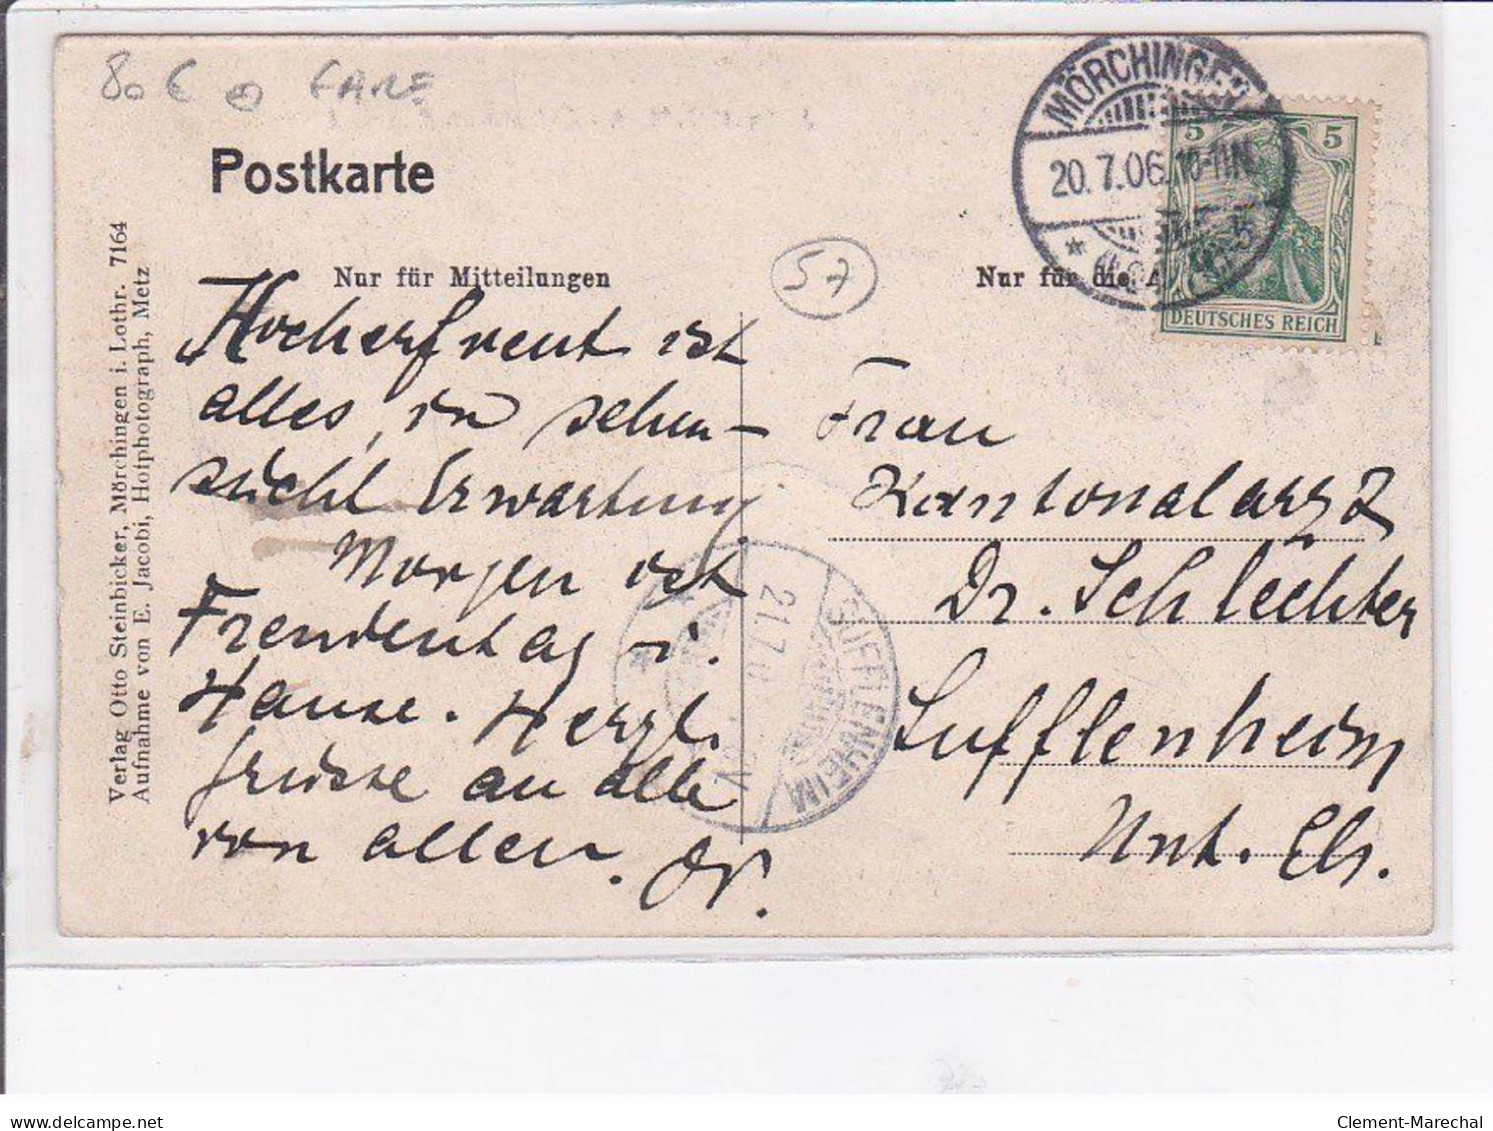 80 € RARE
Postkarte
Nur für Mitteilungen
57
Nur für die A
MÖRCHINGEN
20.7.06. 10-11N.
5 5
DEUTSCHES REICH
Verlag Otto Steinbicker, Mörchingen i. Lothr. 7164
Aufnahme von E. Jacobi, Hofphotograph, Metz
Hocherfreut ist
alles, in sehn-
sücht Erwartung
Morgen ist
Freudentag i.
Hause. Herzl.
Grüsse an alle
von allen.
Frau
Kantonalarzt
Dr. Schlechter
Sufflenheim
Unt. Els.
SUFFLENHEIM
21.7.0
delcampe.net
Clement-Marechal